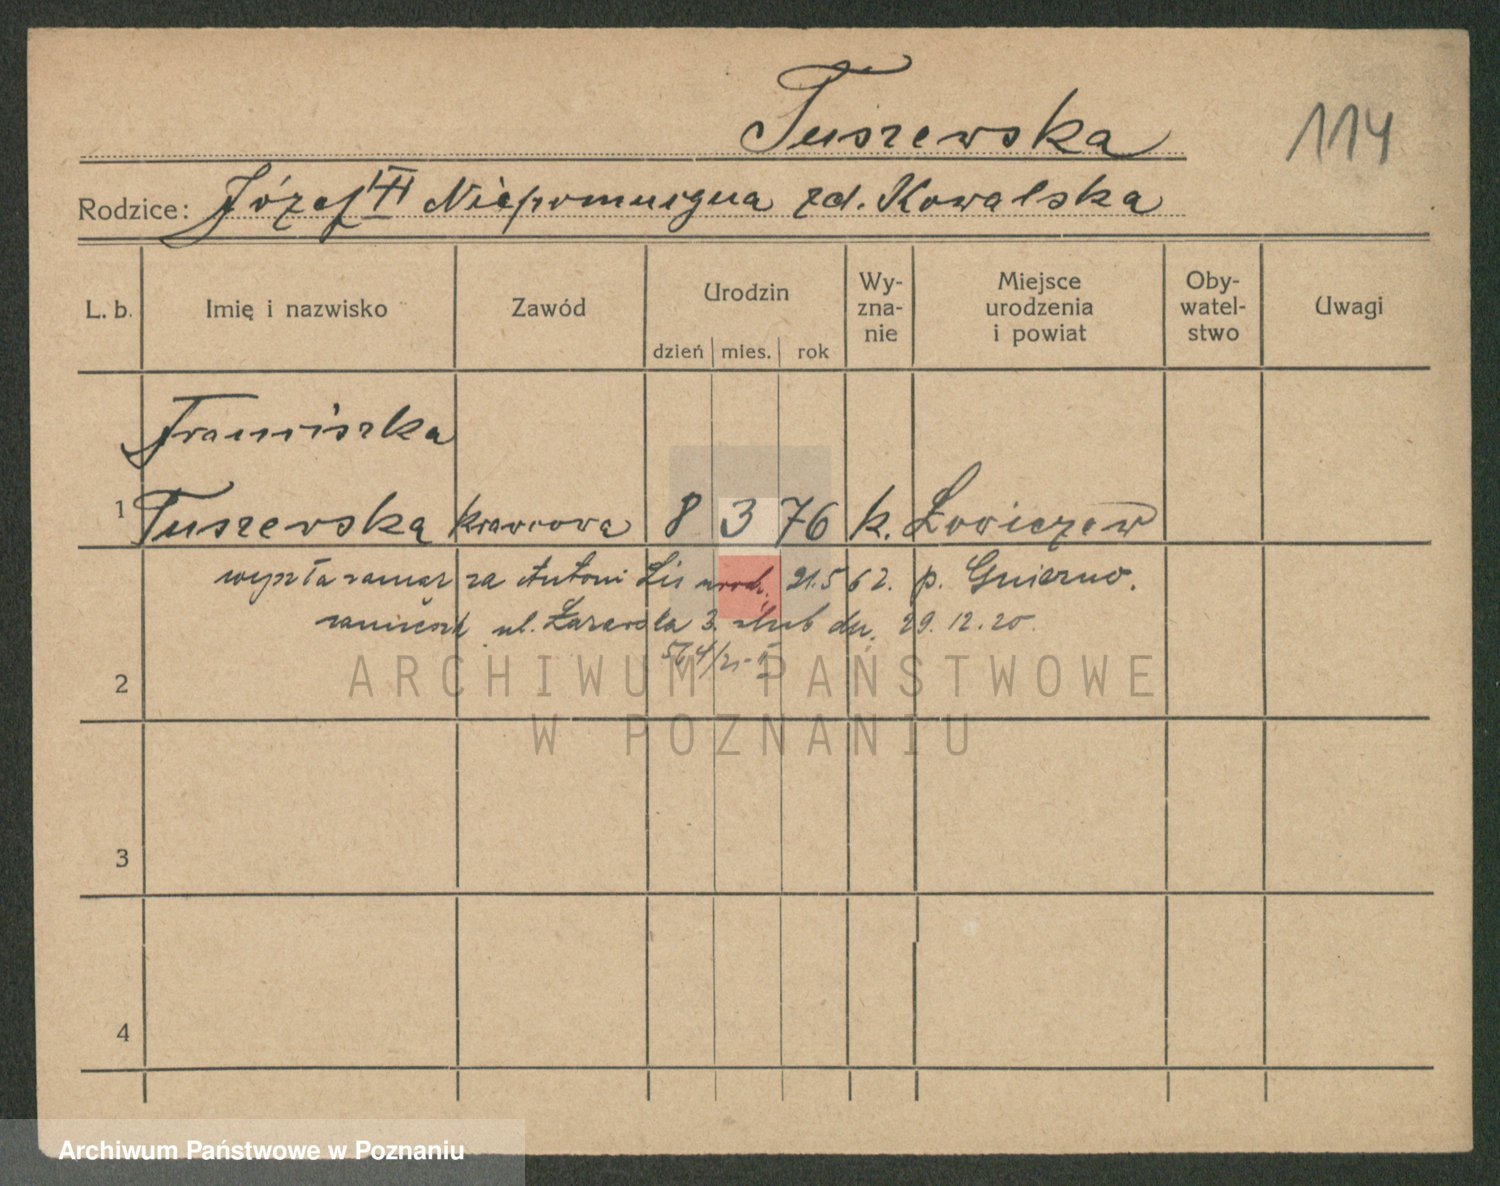 Tuszewska
114
Rodzice: Józef Niepomucyna zd. Kowalska
L. b. Imię i nazwisko Zawód Urodzin dzień mies. rok Wy- zna- nie Miejsce urodzenia i powiat Oby- watel- stwo Uwagi
Franciszka
1 Tuszewska krawcowa 8 3 76 k.
wyszła zamąż za Antoni Lis urodz. 21.5 62. p. Gniezno.
zamieszk ul. 3. ślub dn. 29.12.20.
564/21-II
2
3
4
ARCHIWUM PAŃSTWOWE
W POZNANIU
Archiwum Państwowe w Poznaniu